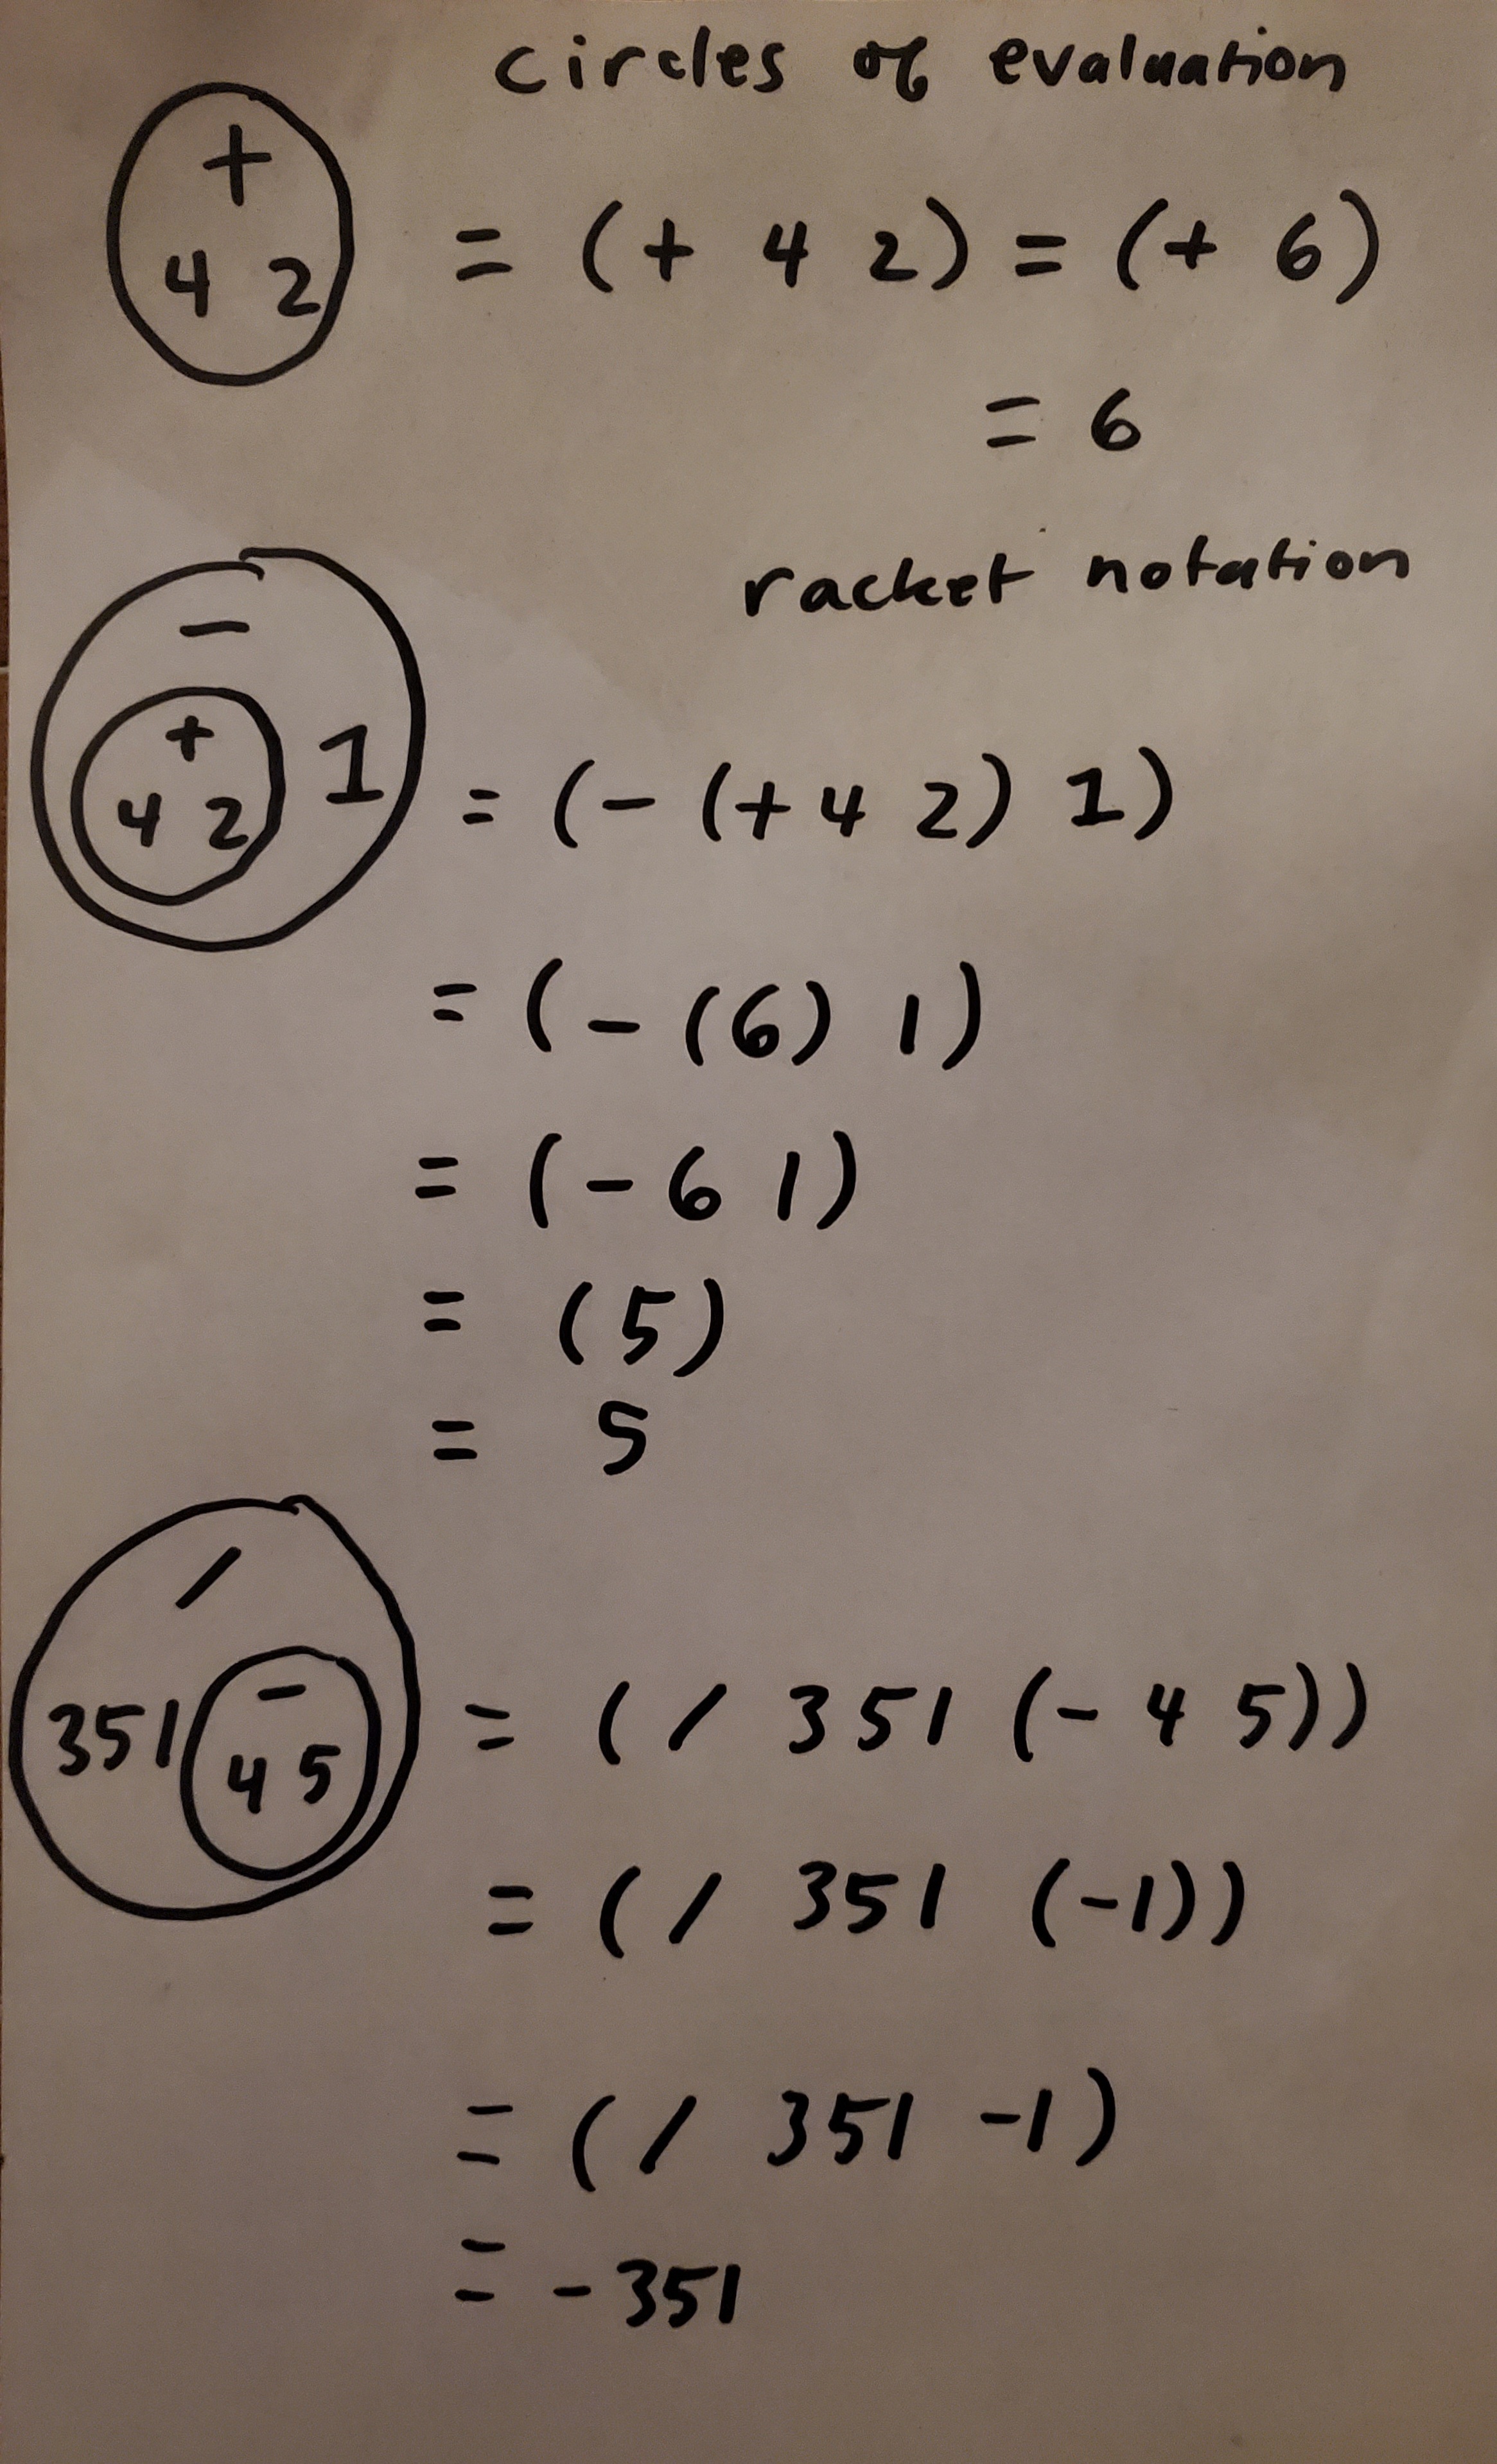 circles of evaluation
+
4 2 = (+ 4 2) = (+ 6)
= 6
racket notation
-
+
4 2 1 = (- (+ 4 2) 1)
= (- (6) 1)
= (- 6 1)
= (5)
= 5
/
-
351 4 5 = (/ 351 (- 4 5))
= (/ 351 (-1))
= (/ 351 -1)
= -351